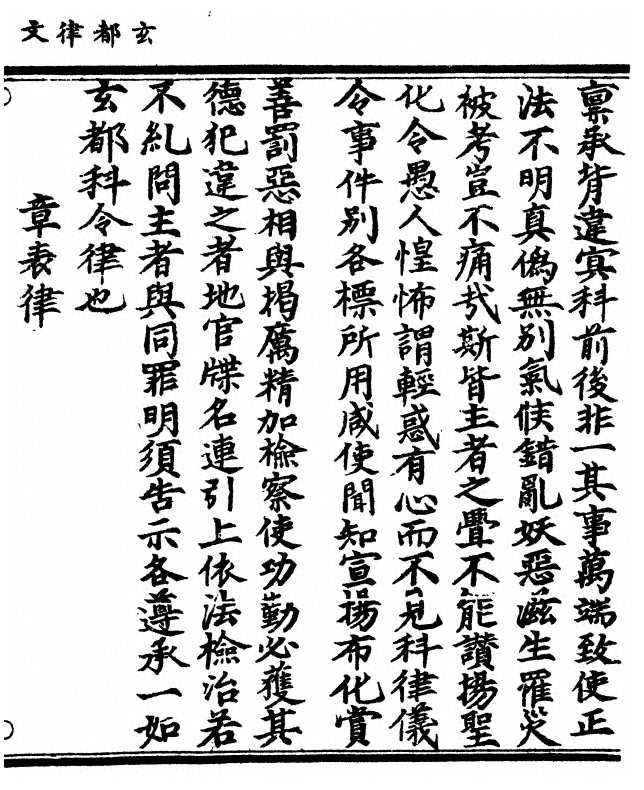 玄都律文
禀承背違冥科前後非一其事萬端致使正
法不明真僞無別氣候錯亂妖惡滋生罹災
被考豈不痛哉斯皆主者之舋不能讃揚聖
化令愚人惶怖謂輕惑有心而不見科律儀
令事件别各標所用咸使聞知宣揚布化賞
善罰惡相與揭厲精加檢察使功勤必獲其
德犯違之者地官牒名連引上依法檢治若
不糺問主者與同罪明須告示各遵承一如
玄都科令律也
章表律